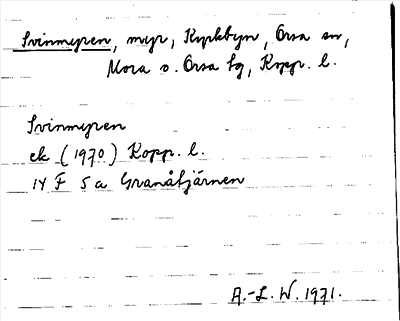 Svinmyren, myr, Kyrkbyn, Orsa sn,
Mora o. Orsa tg, Kopp. l.
Svinmyren
ek (1970) Kopp. l.
14 F 5 a Granåtjärnen
A.-L. W. 1971.